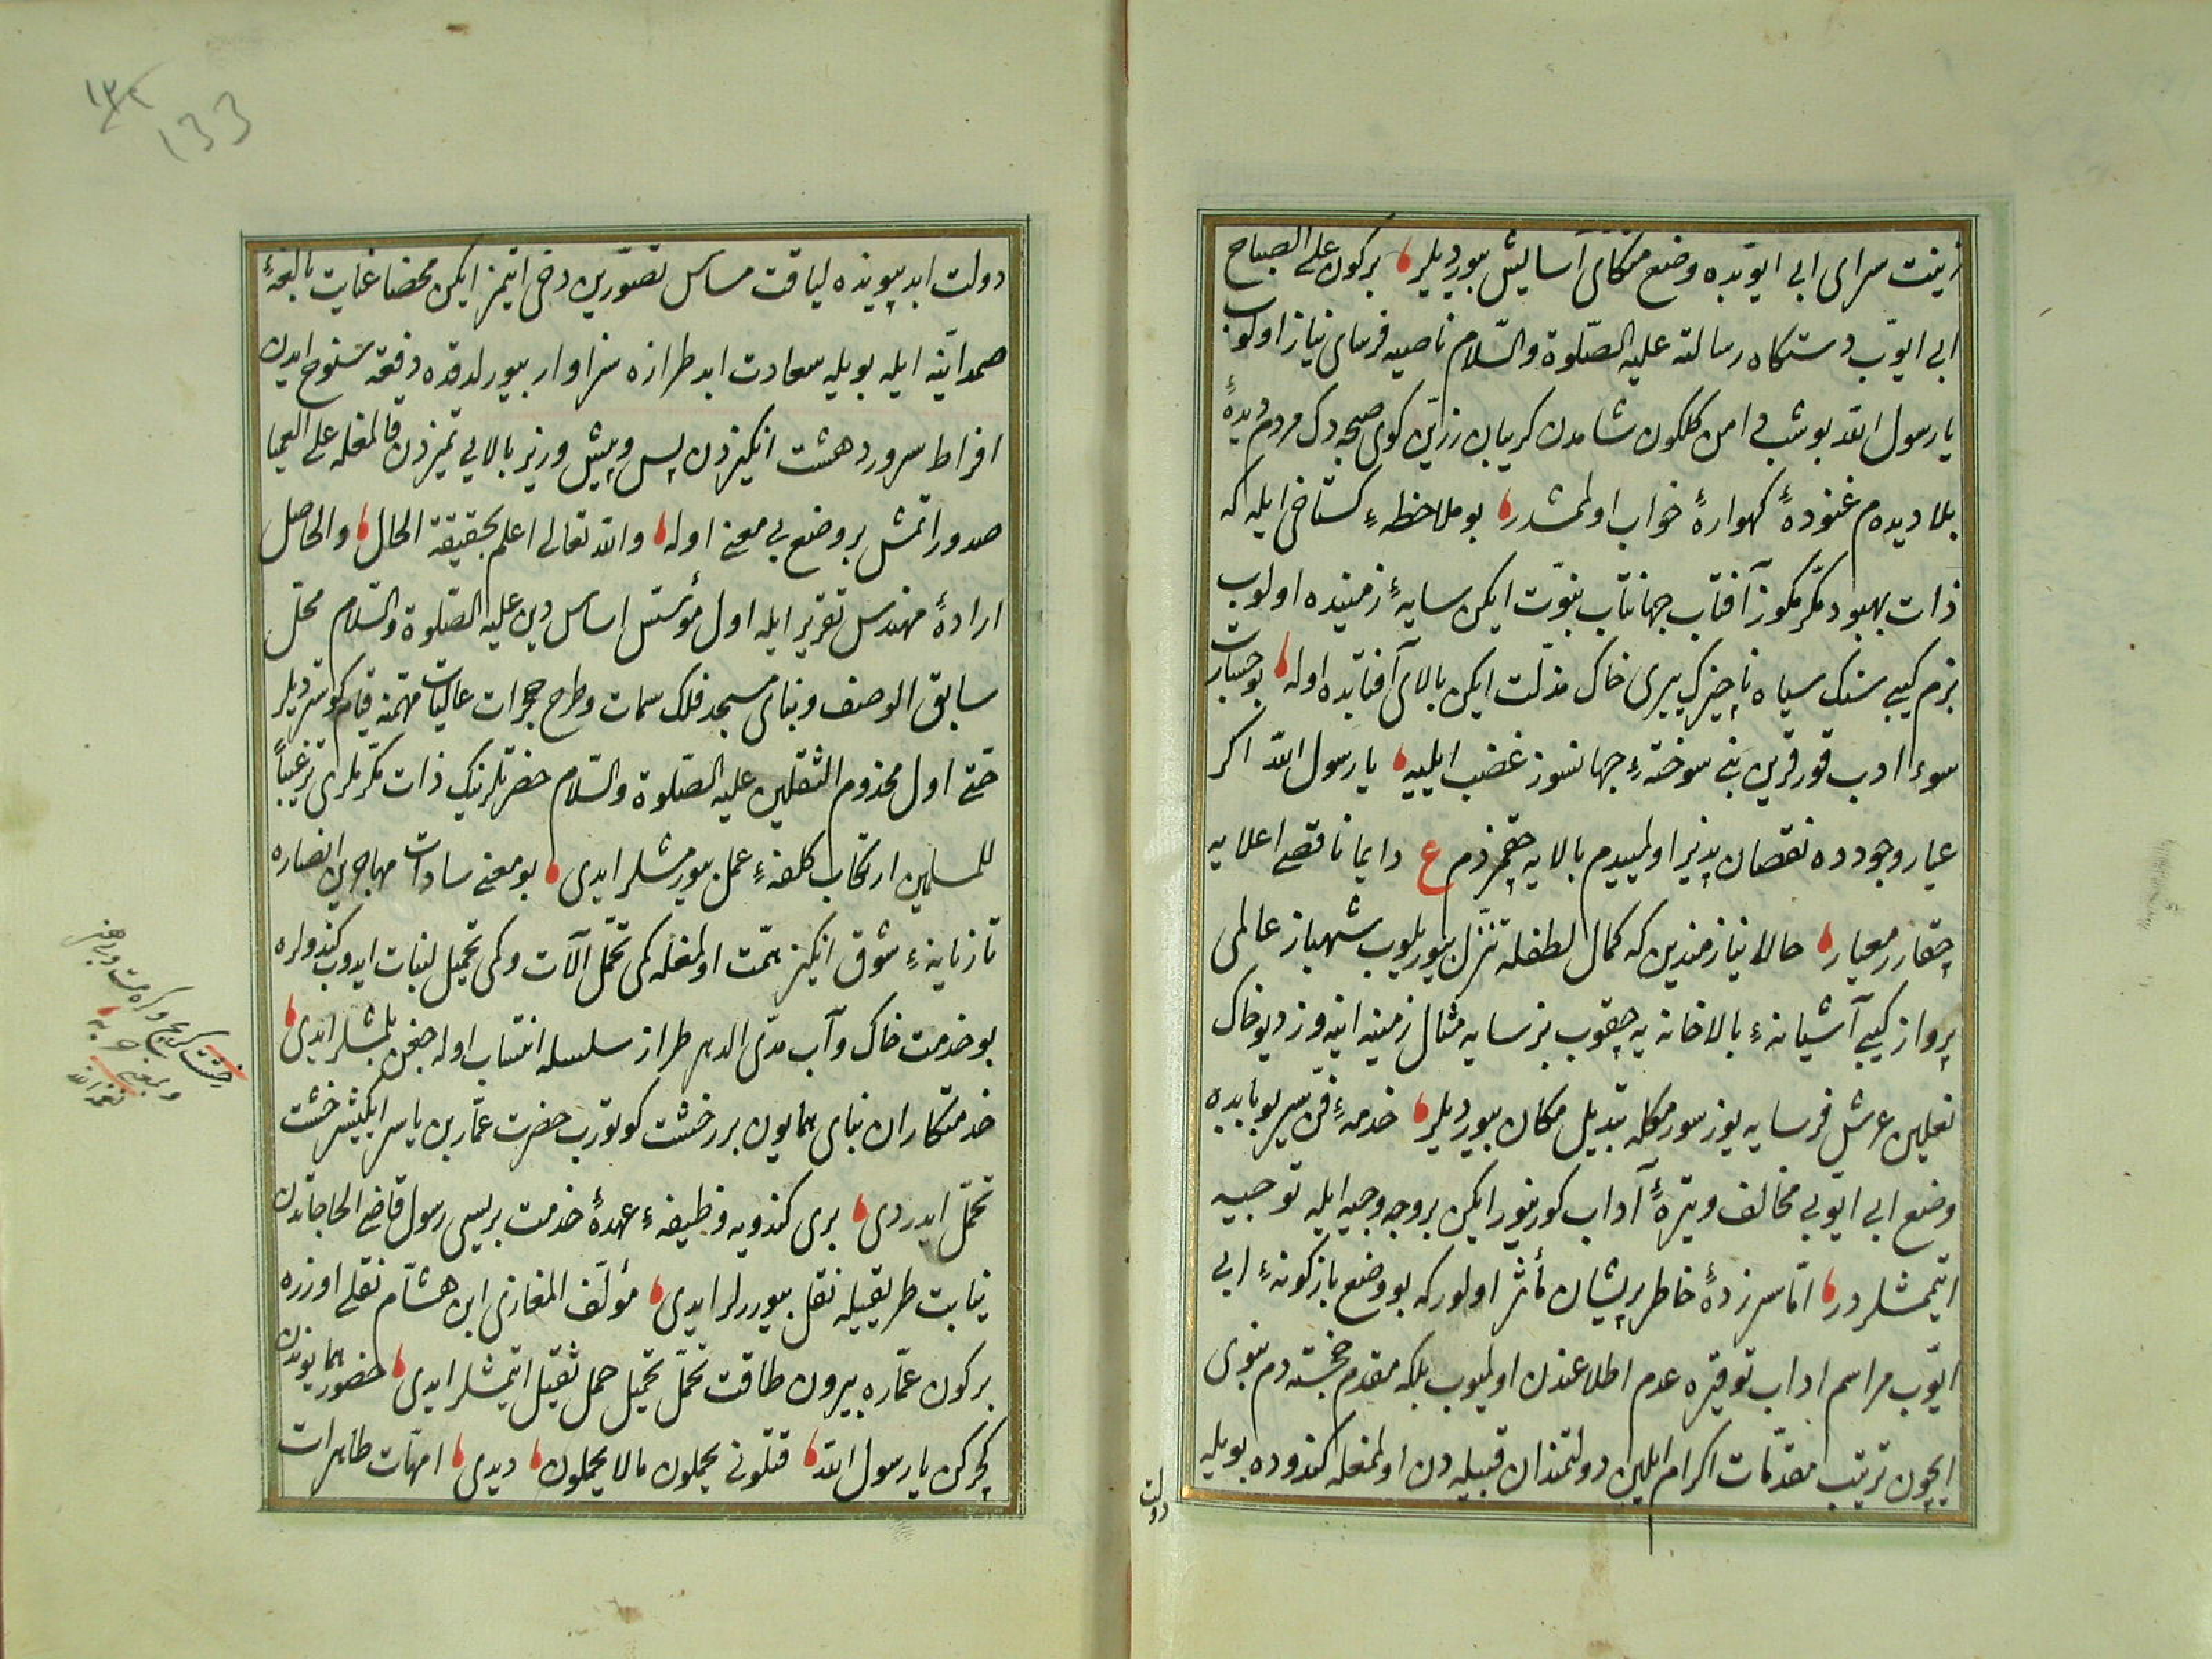 زینت سرای ابی ایوبده وضع متکای آسایش بیوردیلر برکون علی الصباح
ابی ایوب دستکاه رسالته علیه الصلوة والسلام ناصیه فرسای نیاز اولوب
یا رسول الله بوشب دامن کلکون شامدن کریبان زرین کوی صبحه دک مردم دیدهٔ
بلا دیده م غنودهٔ کهوارهٔ خواب اولمشدر بو ملاحظهٔ کستاخی ایله که
ذات بهبود مکرمکوز آفتاب جهانتاب نبوت ایکن سایهٔ زمینده اولوب
بزم کیبی سنک سیاه ناچیزک یری خاک مذلت ایکن بالای آفتابده اوله بو جسارت
سوء ادب قورقرین بنی سوختهٔ جهانسوز غضب ایلیه یا رسول الله اکر
عیار وجودده نقصان پذیر اولمیدم بالایه چقمزدم ع دایما ناقصی اعلایه
چقارر معیار حالا نیازمندین که کمال لطفله تنزل بیوریلوب شهباز عالی
پرواز کیبی آشیانهٔ بالاخانه یه چقوب بز سایه مثال زمینه اینه وز دیو خاک
نعلین عرش فرسایه یوز سورمکله تبدیل مکان بیوردیلر خدمهٔ فن سیر بو بابده
وضع ابی ایوبی مخالف وتیرهٔ آداب کورینور ایکن بروجه وجیه ایله توجیه
ایتمشلردر اما سرزدهٔ خاطر پریشان مأثر اولور که بو وضع بازکونهٔ ابی
ایوب مراسم اداب توقیره عدم اطلاعندن اولمیوب بلکه مقدم خجسته دم نبوی
ایچون ترتیب مقدمات اکرام ایلین دولتمندان قبیله دن اولمغله کندوده بویله
دولت
١٣٢
133
دولت ابد پیوندہ لیاقت مساس تصورین دخی ایتمز ایکن محضا عنایت بالغهٔ
صمدانیه ایله بویله سعادت ابد طرازه سزاوار بیورلدقده دفعة سنوح ایدن
افراط سرور دهشت انکیزدن پس وپیش وزیر بالایی تمیزدن قالمغله علی العمیا
صدور ایتمش بر وضع بی معنی اوله والله تعالی اعلم بحقیقة الحال والحاصل
ارادهٔ مهندس تقریر ایله اول مؤسس اساس دین علیه الصلوة والسلام محل
سابق الوصف وبنای مسجد فلک سمات وطرح حجرات عالیات مهمنه قیام کوستردیلر
حتی اول مخدوم الثقلین علیه الصلوة والسلام حضرتلرینک ذات مکرملری ترغیباً
للمسلمین ارتکاب کلفهٔ عمل بیورمشلر ایدی بو معنی سادات مهاجرین انصاره
تازیانهٔ شوق انکیز همت اولمغله کمی تحمل آلات وکمی تحمیل لبنات ایدوب کندولره
بو خدمت خاک وآب مدی الدهر طراز سلسله انتساب اوله جغن بلمشلر ایدی
خدمتکاران بنای همایون برر خشت کوتورب حضرت عمار بن یاسر ایکیشر خشت
تحمل ایدردی بری کندویه وظیفهٔ عهدهٔ خدمت بریسی رسول قاضی الحاجاتدن
نیابت طریقیله نقل بیوررلر ایدی مؤلف المغازی ابن هشام نقلی اوزره
برکون عماره بیرون طاقت تحمل تحمیل حمل ثقیل ایتمشلر ایدی حضور همایوندن
کچرکن یا رسول الله قتلونی یحملون مالا یحملون دیدی امهات طاهرات
خشت کرپچ